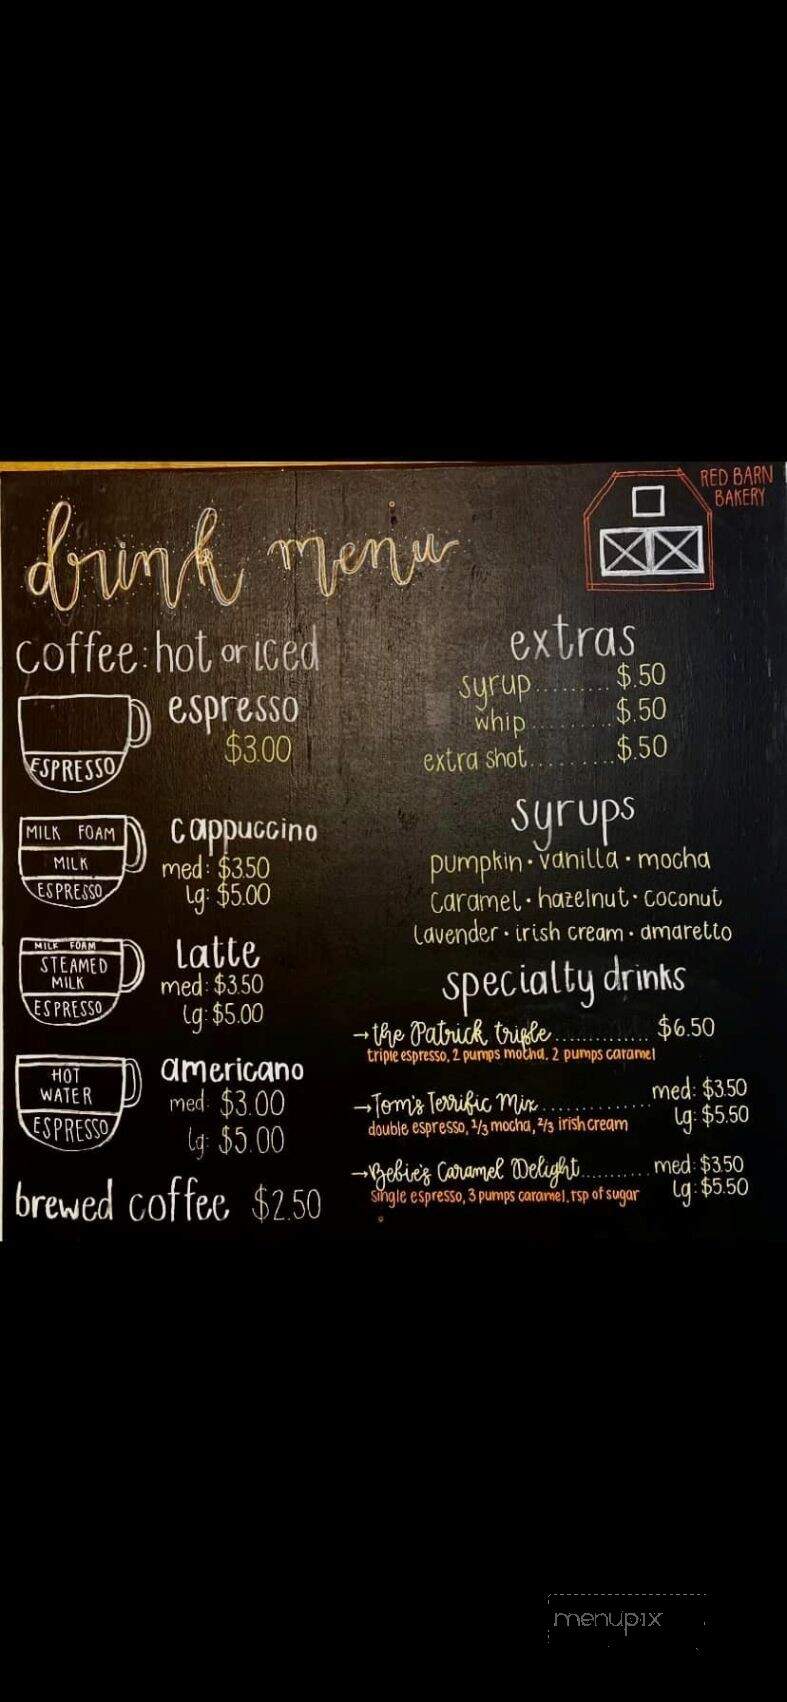 RED BARN
BAKERY
drink menu
coffee: hot or iced
ESPRESSO
espresso
$3.00
MILK FOAM
MILK
ESPRESSO
cappuccino
med: $3.50
lg: $5.00
MILK FOAM
STEAMED
MILK
ESPRESSO
Latte
med: $3.50
lg: $5.00
HOT
WATER
ESPRESSO
americano
med: $3.00
lg: $5.00
brewed coffee $2.50
extras
syrup.......... $.50
whip........... $.50
extra shot.......... $.50
syrups
pumpkin • vanilla • mocha
caramel • hazelnut • coconut
lavender • irish cream • amaretto
specialty drinks
→ the Patrick triple.............. $6.50
triple espresso, 2 pumps mocha, 2 pumps caramel
→ Tom's Terrific Mix.............. med: $3.50
lg: $5.50
double espresso, 1/3 mocha, 2/3 irish cream
→ Bebie's Caramel Delight.......... med: $3.50
lg: $5.50
single espresso, 3 pumps caramel, tsp of sugar
menupix